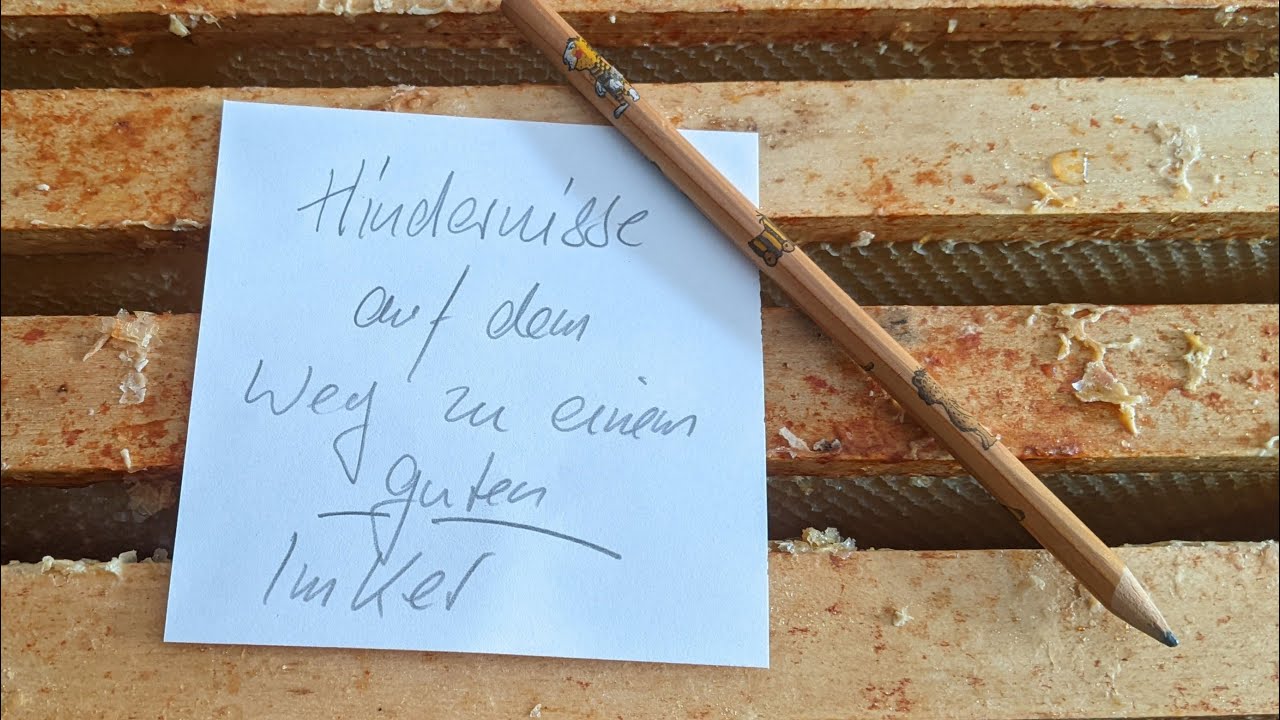 Hindernisse
auf dem
Weg zu einem
guten
Imker